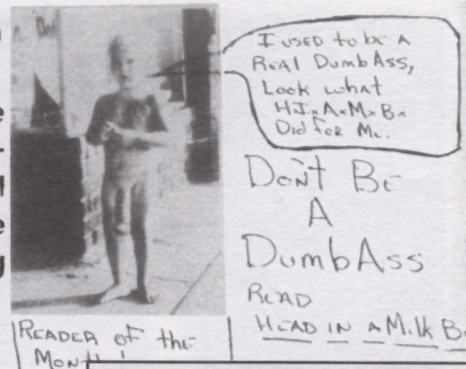 I used to be a
Real DumbAss,
Look what
H.I.A.M.B.
Did for Me.
Don't Be
A
DumbAss
READ
HEAD IN A Milk
READER of the